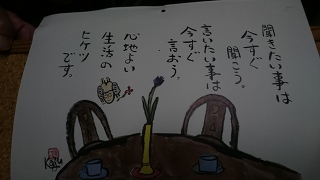 聞きたい事は
今すぐ聞こう。
言いたい事は
今すぐ言おう。
心地よい
生活の
ヒケツ
です。